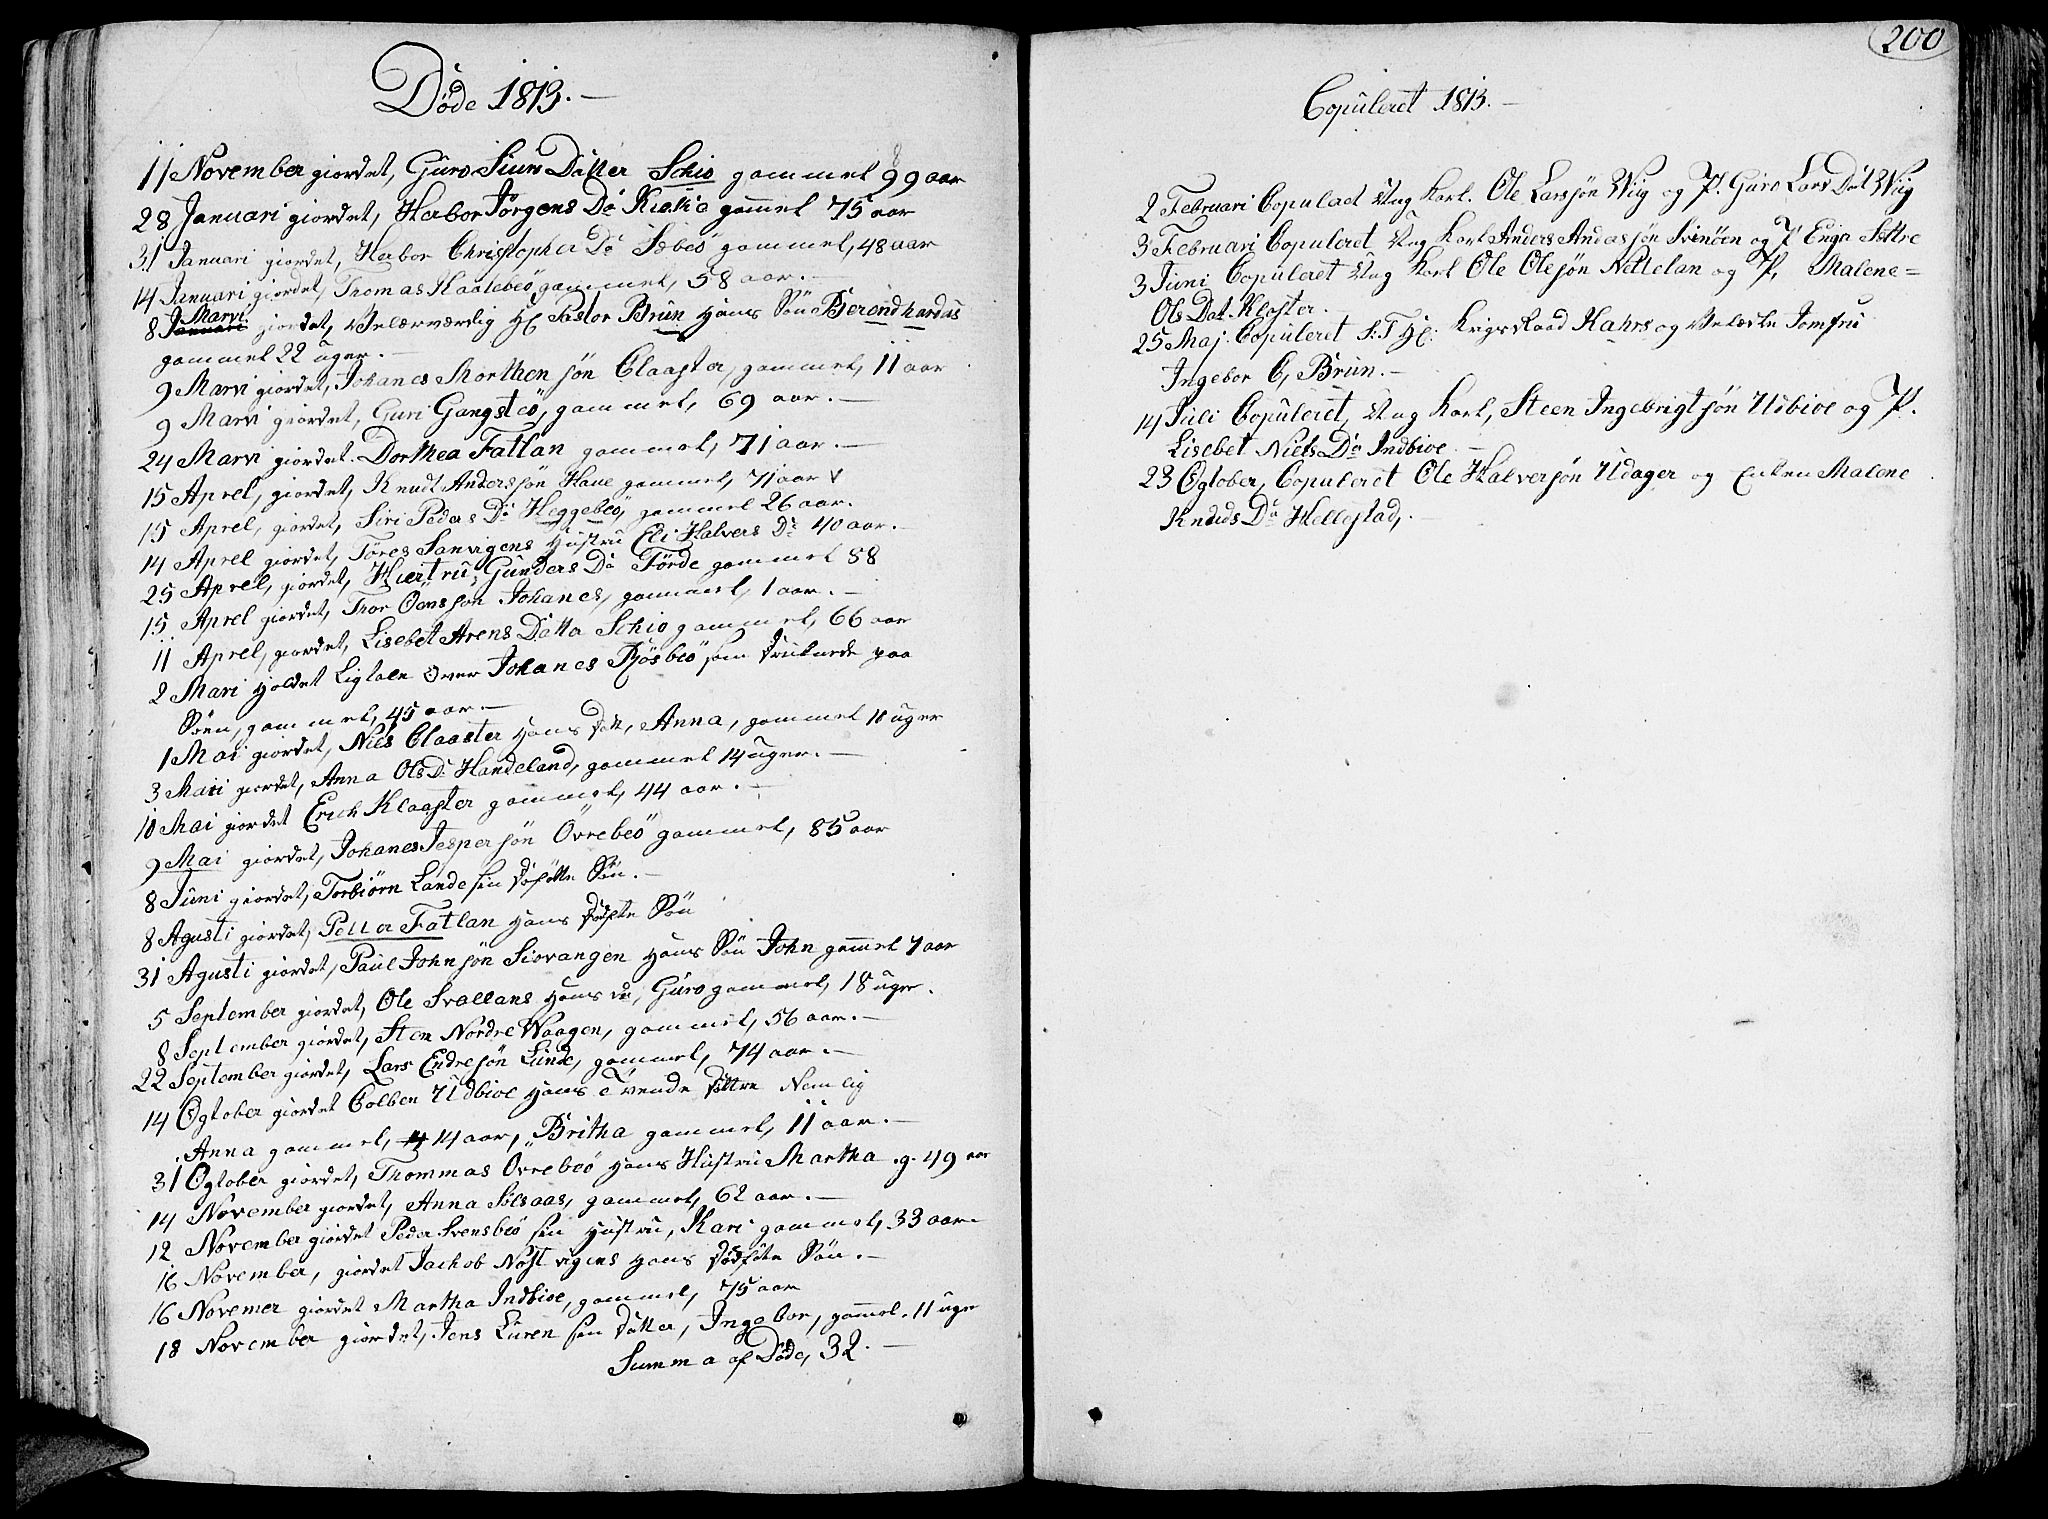 Døde 1813. —
11 November giordet, Guro Siurs Datter Schio gammel 99 aar
28 Januari giordet, Herbor Jørgens Da gammel 75 aar
31 Januari giordet, Herbor Christopher Da Sæbeö gammel, 48 aar
14 Januari giordet, Thomas gammel, 58 aar. —
8 Marvi giordet, Velærværdig H Pastor Brun Hans Sön Berendhardus
gammel 22 uger. —
9 Marvi giordet, Johanes Morthensön Claaster, gammel, 11 aar
9 Marvi giordet, Guri Gangsteö, gammel, 69 aar. —
24 Marvi giordet. Dorthea Fatlan gammel, 71 aar. —
15 Aprel, giordet, Knudt Anderssön Haue gammel, 71 aar
15 Aprel, giordet, Siri Peders Da Heggebeö, gammel 26 aar.
14 Aprel giordet, Tores Sanvigens Hustru Eli Halvers Da 40 aar. —
25 Aprel, giordet, Hiertru, Gunders Da Förde gammel 58
15 Aprel giordet, Thor Johanes, gammel, 1 aar. —
11 Aprel, giordet, Lisebet Arens Datter Schio gammel, 66 aar
2 Mari Holdet Ligtale over Johanes som druknede paa
Söen, gammel, 45 aar. —
1 Mai giordet, Niels Claaster Hans Dat, Anna, gammel 11 uger
3 Maii giordet, Anna Ols Da Handeland, gammel 14 uger. —
10 Mai giordet Erich Klaaster gammel, 44 aar. —
9 Mai giordet, Johanes Jespersön Övrebeö gammel, 85 aar
8 Juni giordet, Torbiörn Lande sin Sön. —
8 Agusti giordet, Petter Fatlan Hans Sön
31 Agusti giordet, Paul Johnsön Siovangen Hans Sön John gammel 7 aar
5 September giordet, Ole Svallans Hans Guro gammel, 18 uger.
8 September giordet, Sten Nordre Waagen, gammel, 56 aar. —
22 September giordet, Lars Endresön Lunde, gammel, 74 aar. —
14 Ogtober giordet Colben Udbioe Hans Tvende Döttre Nemlig
Anna gammel, 14 aar, Britha gammel, 11 aar. —
31 Ogtober giordet, Thommas Ovrebeö Hans Hustru Martha .g. 49 aar
14 November giordet, Anna Solsaas, gammel, 62 aar. —
12 November giordet Peder Svensbeö sin Hustru, Kari gammel, 33 aar
16 November, giordet Jachob Nöstvigens Hans Sön. —
16 Novemer giordet Martha Indbioe, gammel, 75 aar
18 November giordet, Jens Luren sin Datter, Ingebor, gammel. 11 uger
Summa af Döde, 32. —
200
Copuleret 1813. —
2 Februari Copulaet Ung Karl. Ole Larssön Wiig og P. Guro Lars Dat Wiig
3 Februari Copuleret Ung Karl Anders Anderssön Svinöen og P Enga Settre
3 Juni Copuleret Ung Karl Ole Olesön Nettelan og P, Malene=
Ols Dat. Kloster. —
25 Maj. Copuleret S:T H: Krigs Raad Hahrs og Jomfru
Ingebor C, Brun. —
14 Juli Copuleret, Ung Karl, Steen Ingebrigtsön Udbioe og P.
Lisebet Niels Da Indbioe —
23 Ogtober, Copuleret Ole Halversön Udager og Enken Malene
Knuds Da Hellestad, —